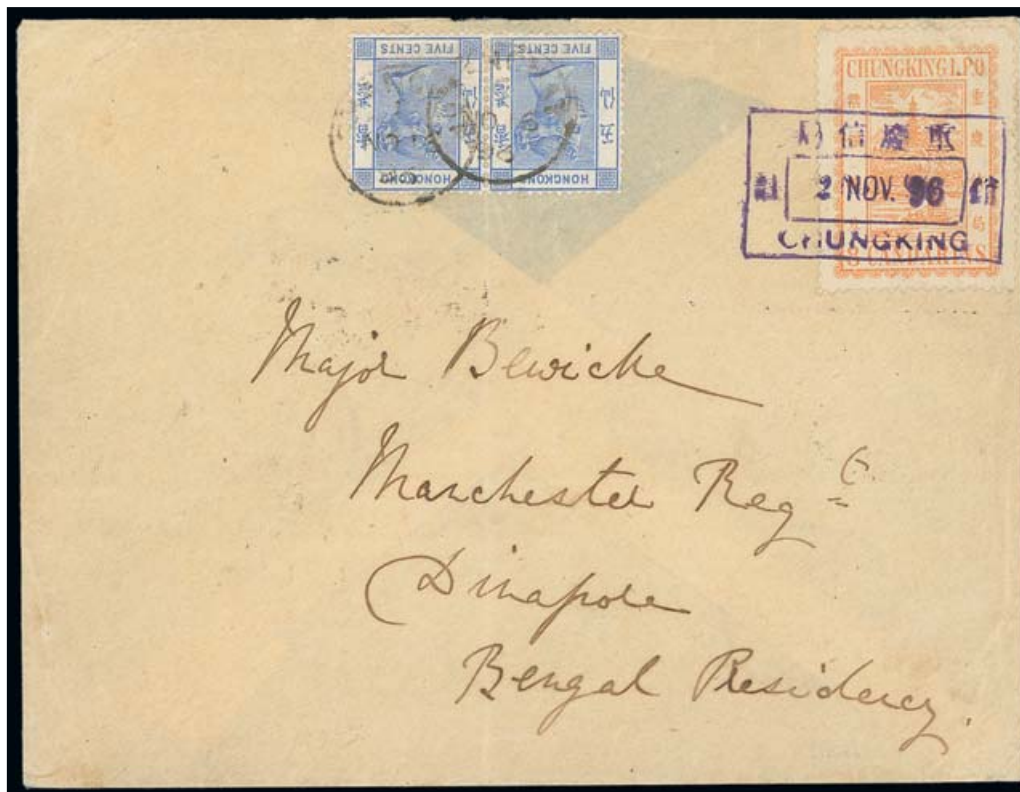 FIVE CENTS FIVE CENTS
HONGKONG HONGKONG
五仙
CHUNGKING L.P.O
重慶
重慶信局
2 NOV. 96
CHUNGKING
3 CANDARINS
Major Bewicke
Manchester Regt
Dinapore
Bengal Presidency.